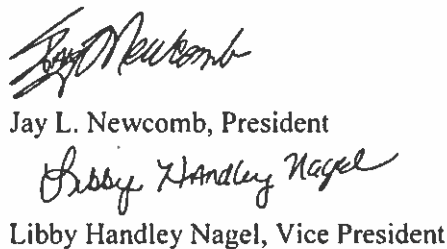 Jay Newcomb
Jay L. Newcomb, President
Libby Handley Nagel
Libby Handley Nagel, Vice President